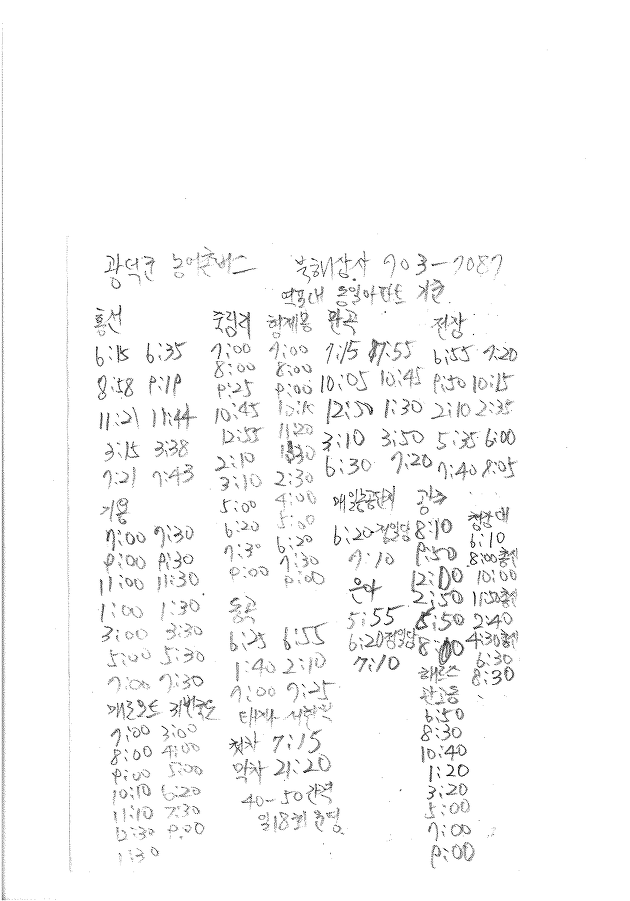 농어촌버스 703-7087
동일아파트 기준
홍선
6:15 6:35
8:58 9:19
11:21 11:44
3:15 3:38
7:21 7:43
기용
7:00 7:30
9:00 9:30
11:00 11:30
1:00 1:30
3:00 3:30
5:00 5:30
7:00 7:30
7:00 3:00
8:00 4:00
9:00 5:00
10:10 6:20
11:10 7:30
12:30 9:00
1:30
죽림리
7:00
8:00
9:25
10:45
12:55
2:10
3:10
5:00
6:20
7:30
9:00
동곡
6:25 6:55
1:40 2:10
7:00 7:25
첫차 7:15
막차 21:20
40-50 간격
일18회 운영
7:00
8:00
9:00
10:15
11:20
2:30
4:00
5:00
6:20
7:30
9:00
판곡
7:15 7:55
10:05 10:45
12:50 1:30
3:10 3:50
6:30 7:20
6:20 정일당
7:10
5:55
6:20 정일당
7:10
전장
6:55 7:20
9:50 10:15
2:10 2:35
5:35 6:00
7:40 8:05
8:10
9:50
12:00
2:50
5:50
8:00
6:50
8:30
10:40
1:20
3:20
5:00
7:00
9:00
6:10
8:00
10:00
11:50
2:40
4:30
6:30
8:30